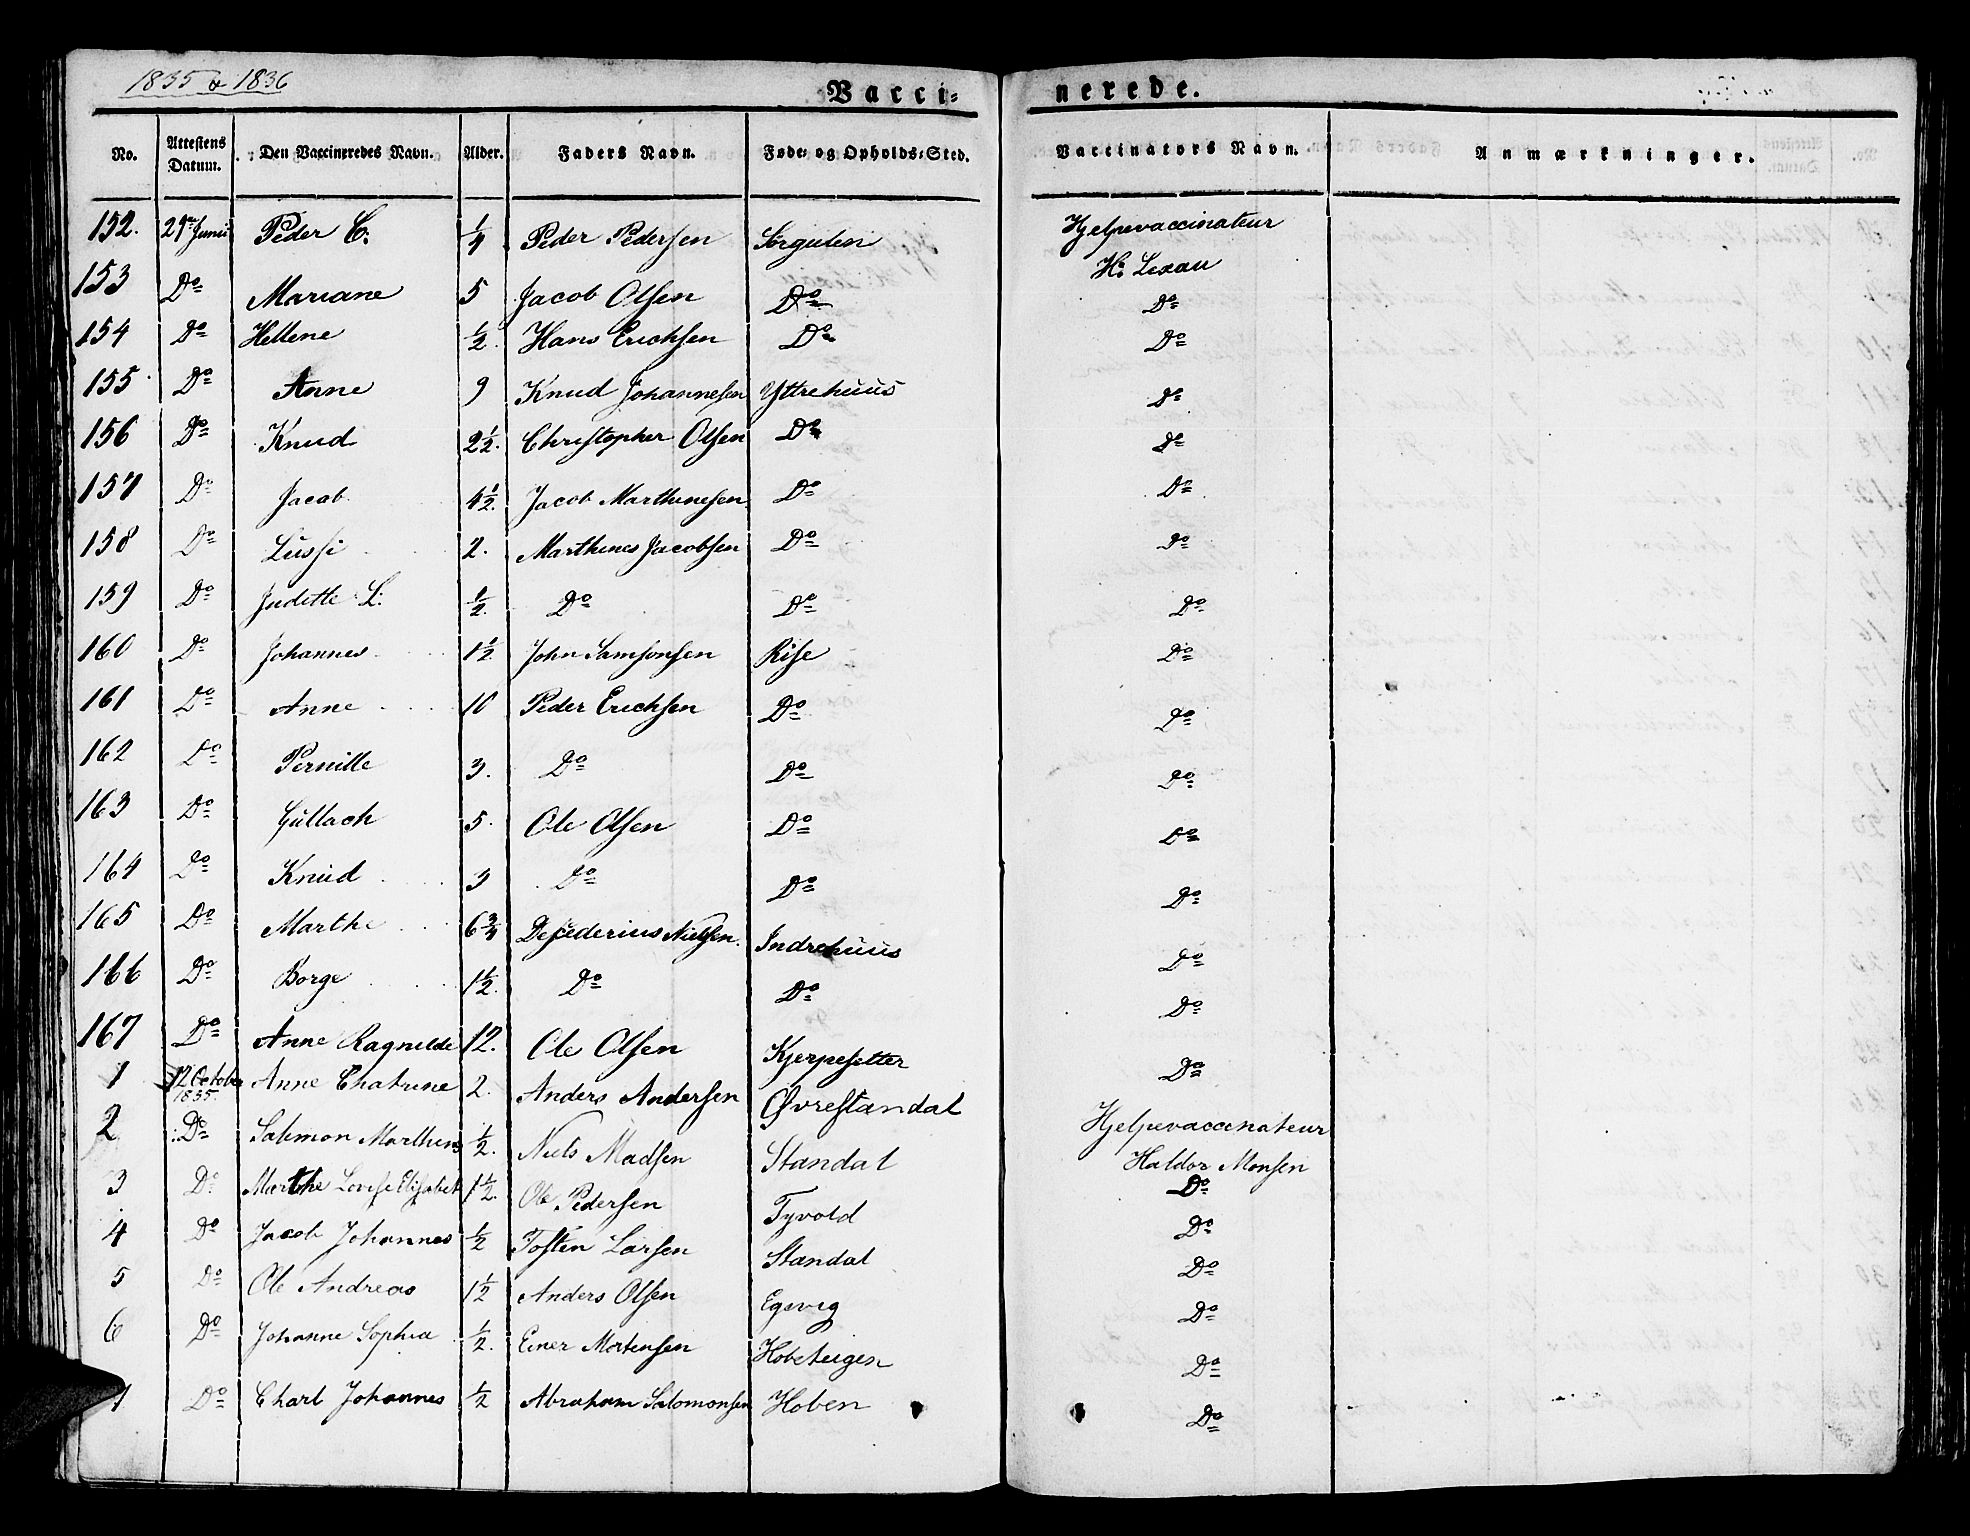 1835 & 1836
Vacci- nerede.
No. Attestens Datum. Den Vaccineredes Navn. Alder. Faders Navn. Føde- og Opholds-Sted. Vaccinators Navn. Anmærkninger.
152. 21de Junii Peder C. 1/4 Peder Pedersen Sørgulen Hjelpevaccinateur H: Lexau
153 Do Mariane 5 Jacob Olsen Do Do
154 Do Hellene 1/2 Hans Erichsen Do Do
155 Do Anne 9 Knud Johannesen Yttrehuus Do
156 Do Knud 2 1/2. Christopher Olsen Do Do
157 Do Jacob 4 1/2. Jacob Marthinesen Do Do
158 Do Lussi 2. Marthines Jacobsen Do Do
159 Do Judette L: 1/2. Do Do Do
160 Do Johannes 1 1/2 John Samsonsen Rise Do
161 Do Anne 10 Peder Erichsen Do Do
162 Do Pernille 3. Do Do Do
163 Do Gullach 5. Ole Olsen Do Do
164 Do Knud 3 Do Do Do
165 Do Marthe 6 3/4 Desederius Nielsen. Indrehuus Do
166 Do Borge 1 1/2. Do Do Do
167 Do Anne Ragnilde 12. Ole Olsen Kjerpesetter Do
1 12 October 1835. Anne Chatrine 2. Anders Andersen Øvrestandal Hjelpevaccinateur
2 Do Salimon Marthins 1/2. Niels Madsen Standal Haldor Monsen
3 Do Marthe Lovise Elisabet 1 1/2. Ole Pedersen Tyvold Do
4 Do Jacob Johannes 1/2 Tosten Larsen Standal Do
5 Do Ole Andreas 1 1/2 Anders Olsen Egsvig Do
6 Do Johanne Sophia 1/2. Einer Mortensen Hobeteigen Do
Do Charl Johannes 1/2 Abraham Salomonsen Hoben Do
Do